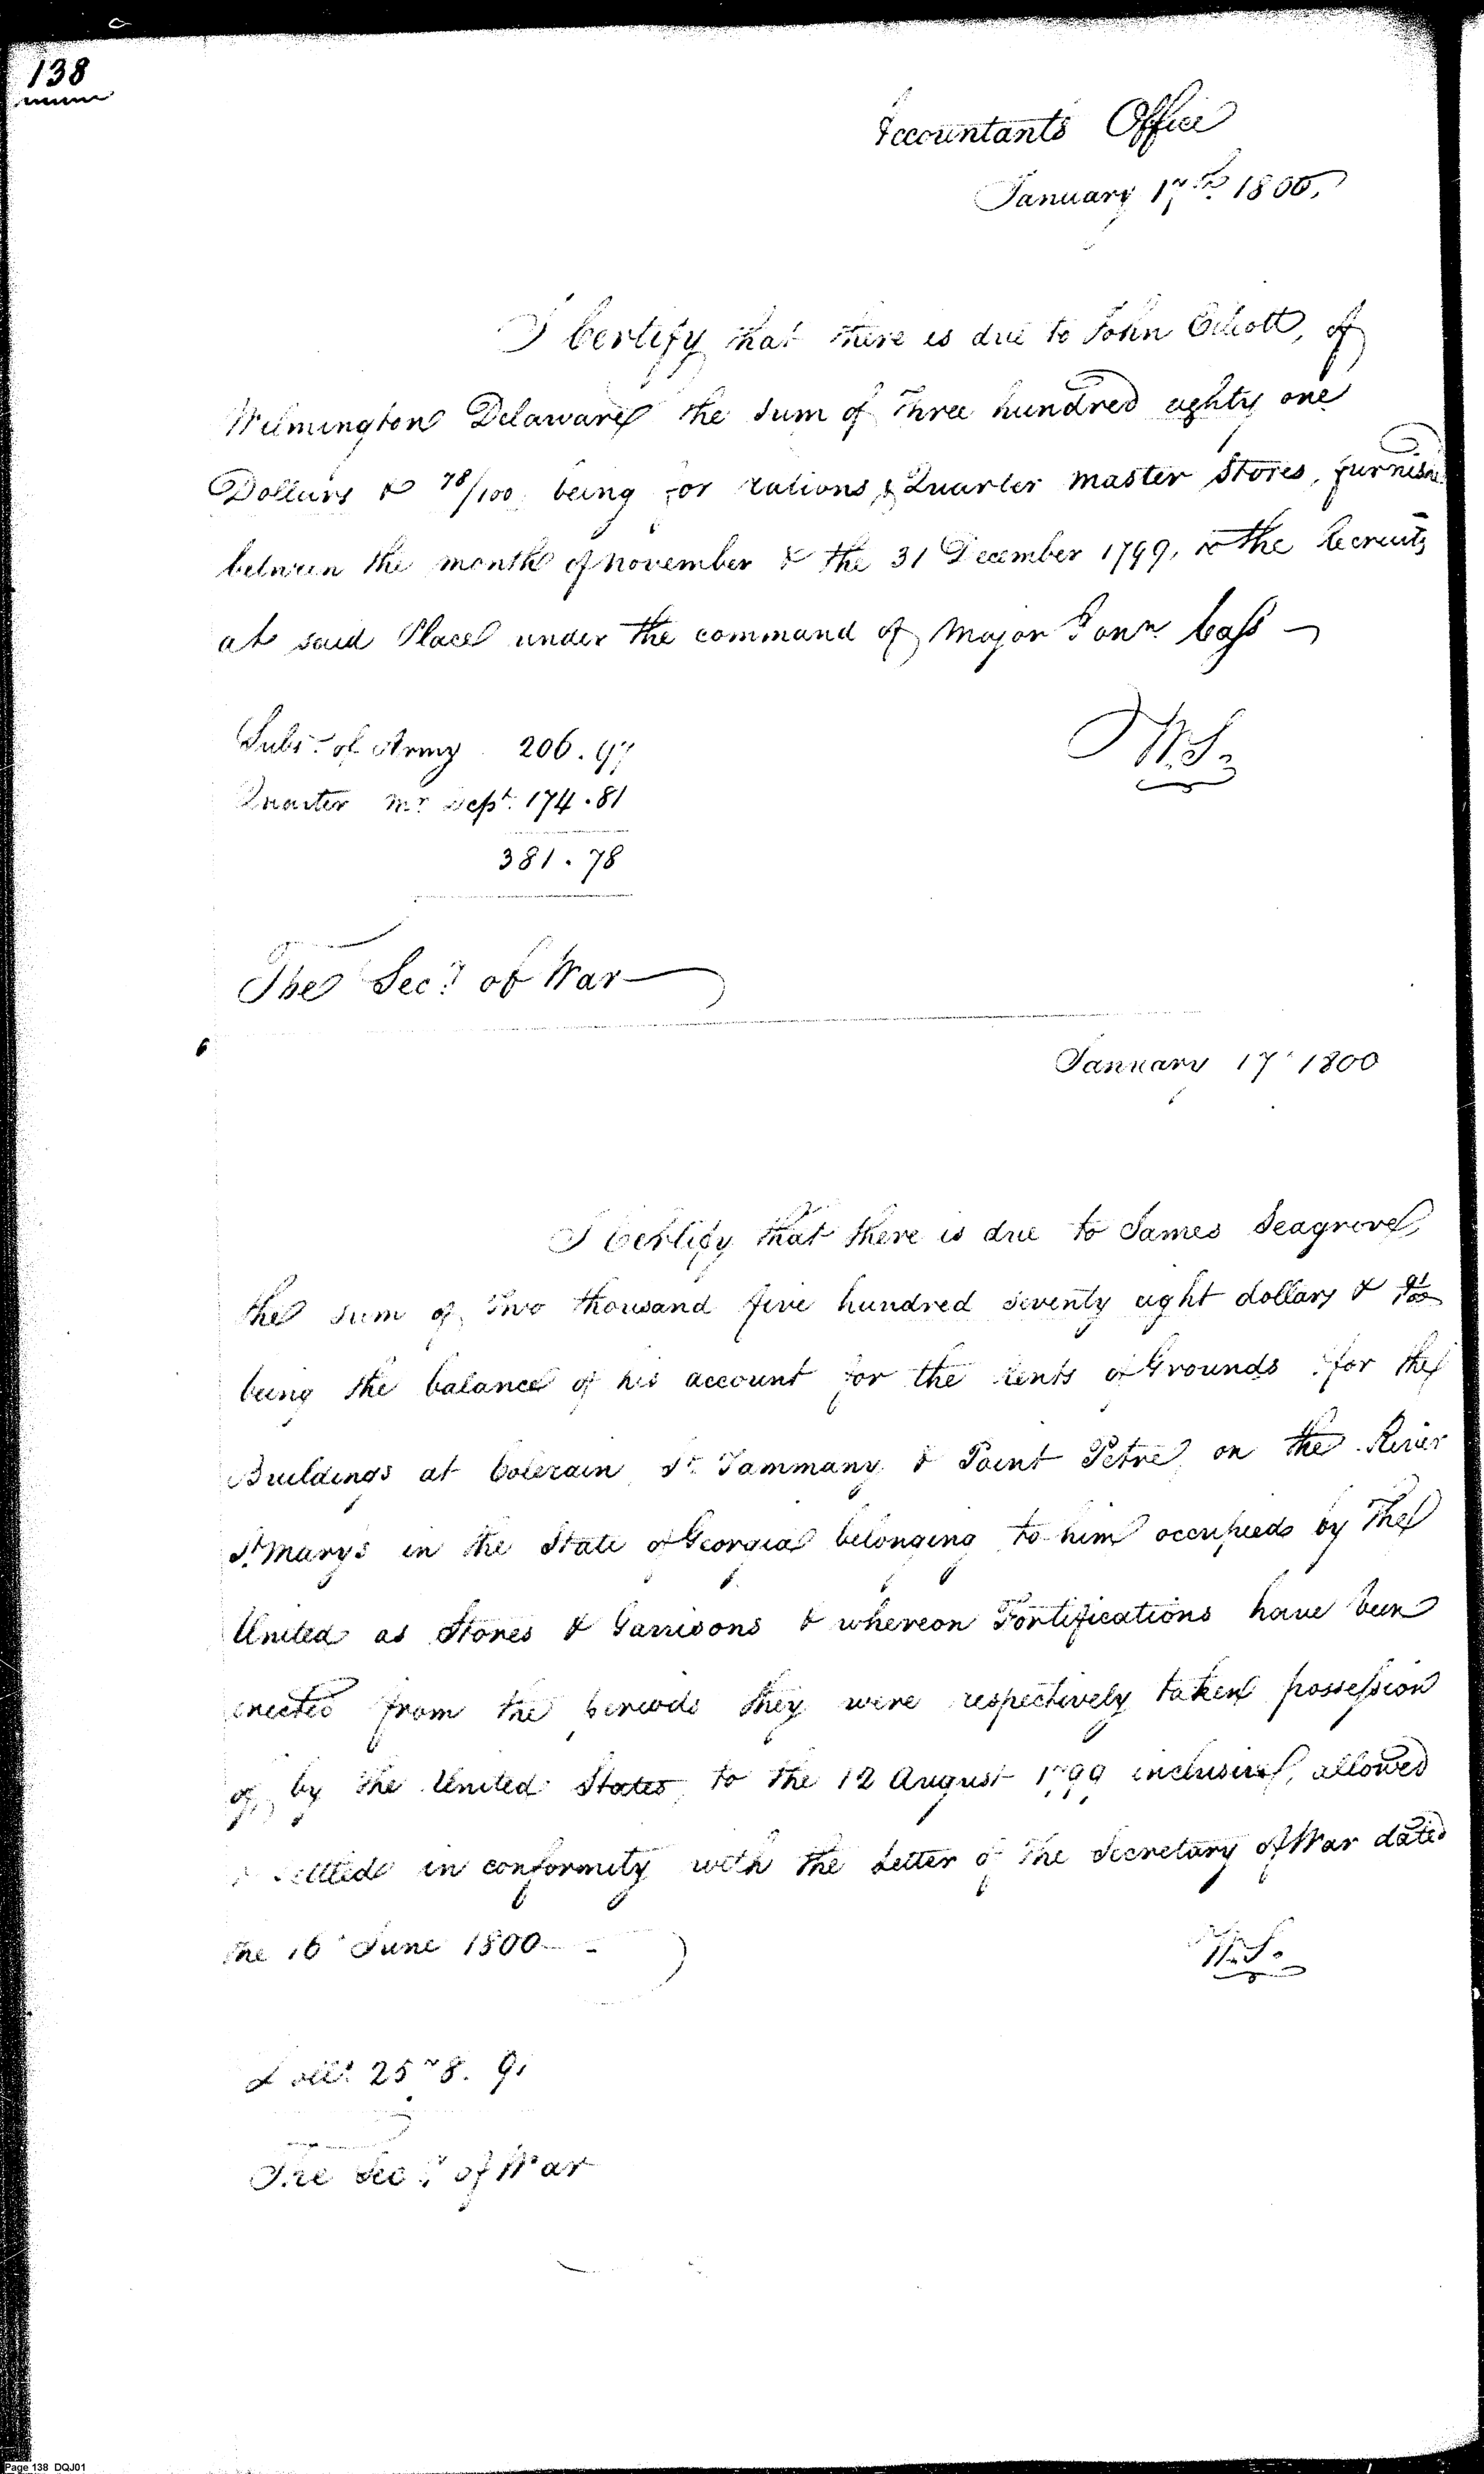 138
Accountants Office
January 17th 1800,
I Certify that there is due to John Elliott, of
Wilmington Delaware the sum of three hundred eighty one
Dollars & 78/100 being for rations & Quarter master Stores, furnishe
between the month of November & the 31 December 1799, to the Recruits
at said Place under the command of Major Jonn. Cass
W.S.
Subs. of Army 206.97
Quarter Mr. Dept. 174.81
381.78
The Secy. of War
January 17 1800
I Certify that there is due to James Seagrove
the sum of Two thousand five hundred seventy eight dollars & 91/100
being the balance of his account for the rents of Grounds for the
Buildings at Colerain St. Tammany & Point Petre, on the River
St. Marys in the State of Georgia belonging to him occupied by the
United as Stores & Garrisons & whereon Fortifications have been
erected from the periods they were respectively taken possession
of by the United States, to the 12 August 1799 inclusive, allowed
& settled in conformity with the Letter of the Secretary of War dated
the 16 June 1800
W.S.
Dolls. 2578.91
The Secy. of War
Page 138 DQJ01